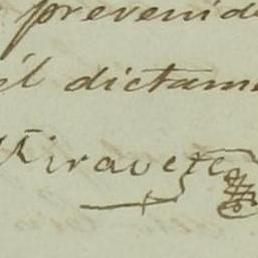 prevenid
él dictam
Miravete